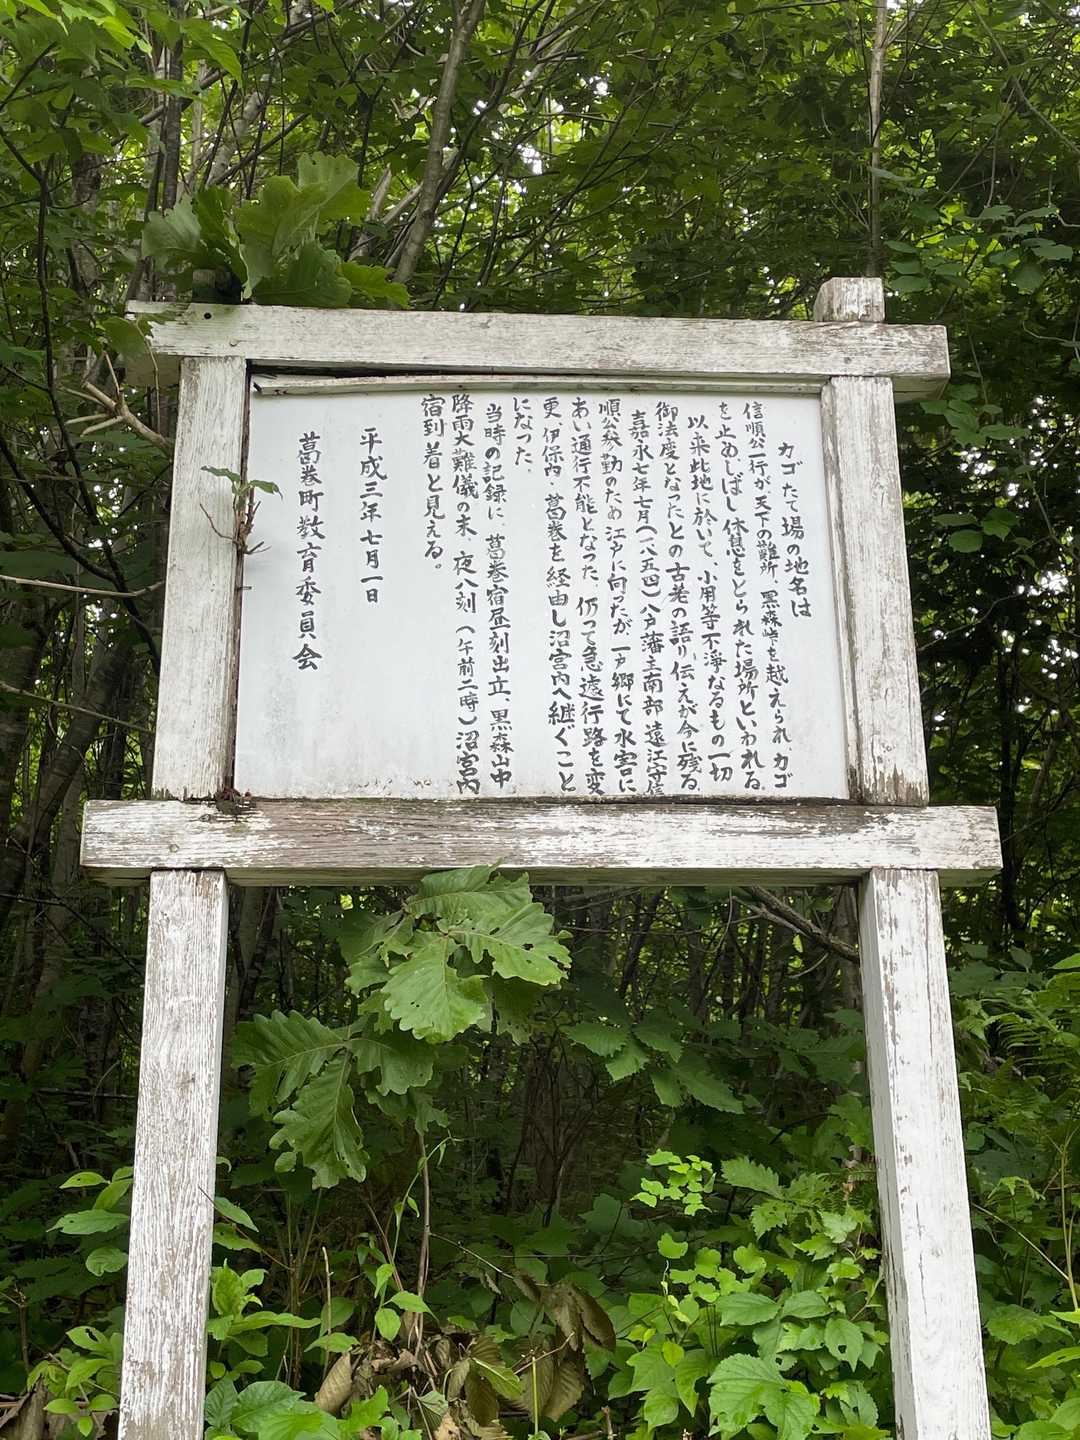 カゴたて場の地名は
信順公一行が天下の難所、黒森峠を越えられ、カゴ
を止めしばし休憩をとられた場所といわれる。
以来此地に於いて、小用等不浄なるもの一切
御法度となったとの古老の語り伝えが今に残る。
嘉永七年七月(一八五四)八戸藩主南部遠江守信
順公参勤のため江戸に向ったが、一戸郷にて水害に
あい通行不能となった、仍って急遽行路を変
更、伊保内、葛巻を経由し沼宮内へ継ぐこと
になった。
当時の記録に、葛巻宿昼刻出立、黒森山中
降雨大難儀の末、夜八刻(午前二時)沼宮内
宿到着と見える。
平成三年七月一日
葛巻町教育委員会